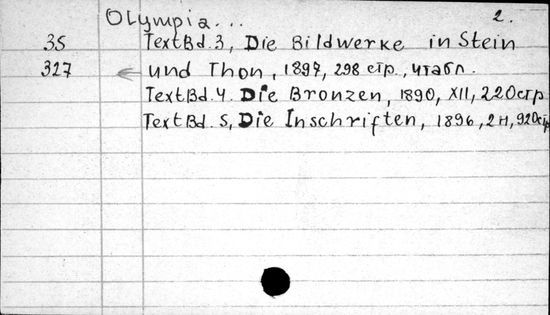 Olympia... 2.
35 Text Bd. 3, Die Bildwerke in Stein
327 und Thon, 1897, 298 стр., и табл.
Text Bd. 4. Die Bronzen, 1890, XII, 220 стр
Text Bd. 5, Die Inschriften, 1896, 2 н, 920 стр